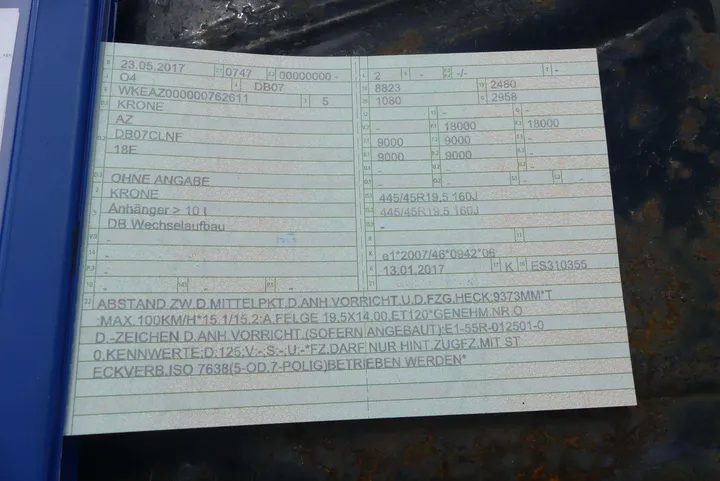 23.05.2017 0747 00000000 -
O4 DB07
WKEAZ000000762611 5
KRONE
AZ
DB07CLNF
18E
OHNE ANGABE
KRONE
Anhänger > 10 t
DB Wechselaufbau
-
-
- - -
2 - -/- -
8823 2480
1080 2958
- -
- 18000 18000
9000 9000 -
9000 9000 -
- - -
- - - -
445/45R19,5 160J
445/45R19,5 160J
-
-
e1*2007/46*0942*06
13.01.2017 K ES310355
ABSTAND ZW.D.MITTELPKT.D.ANH.VORRICHT.U.D.FZG.HECK:9373MM*T
.MAX.100KM/H*15.1/15.2:A.FELGE 19,5X14,00,ET120*GENEHM.NR O
D.-ZEICHEN D.ANH.VORRICHT.(SOFERN ANGEBAUT):E1-55R-012501-0
0,KENNWERTE:D:125,V:-,S:-,U:-*FZ.DARF NUR HINT.ZUGFZ.MIT ST
ECKVERB.ISO 7638(5-OD.7-POLIG)BETRIEBEN WERDEN*